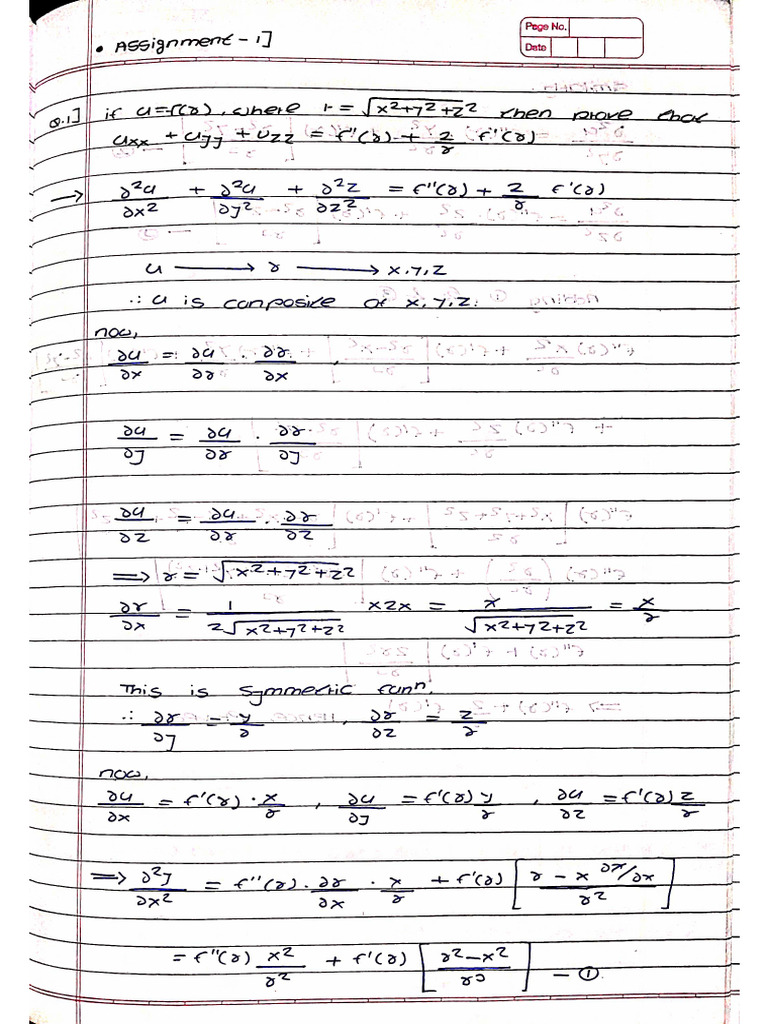 Page No.
Date
• Assignment - 1]
Q.1] if u=f(r), where r = √x²+y²+z² then prove that
uxx + uyy + uzz = f'(r) + 2/r f'(r)
→ ∂²u/∂x² + ∂²u/∂y² + ∂²z/∂z² = f''(r) + 2/r f'(r)
u → r → x,y,z
∴ u is composite of x,y,z.
now,
∂u/∂x = ∂u/∂r · ∂r/∂x ,
∂u/∂y = ∂u/∂r · ∂r/∂y
∂u/∂z = ∂u/∂r · ∂r/∂z
⟹ r = √x²+y²+z²
∂r/∂x = 1/2√x²+y²+z² x2x = x/√x²+y²+z² = x/r
This is symmetric funⁿ.
∴ ∂r/∂y = y/r , ∂r/∂z = z/r
now,
∂u/∂x = f'(r) · x/r , ∂u/∂y = f'(r) y/r , ∂u/∂z = f'(r) z/r
⟹ ∂²y/∂x² = f''(r) · ∂r/∂x · x/r + f'(r) [r - x ∂r/∂x / r²]
= f''(r) x²/r² + f'(r) [r² - x² / r³] - ①